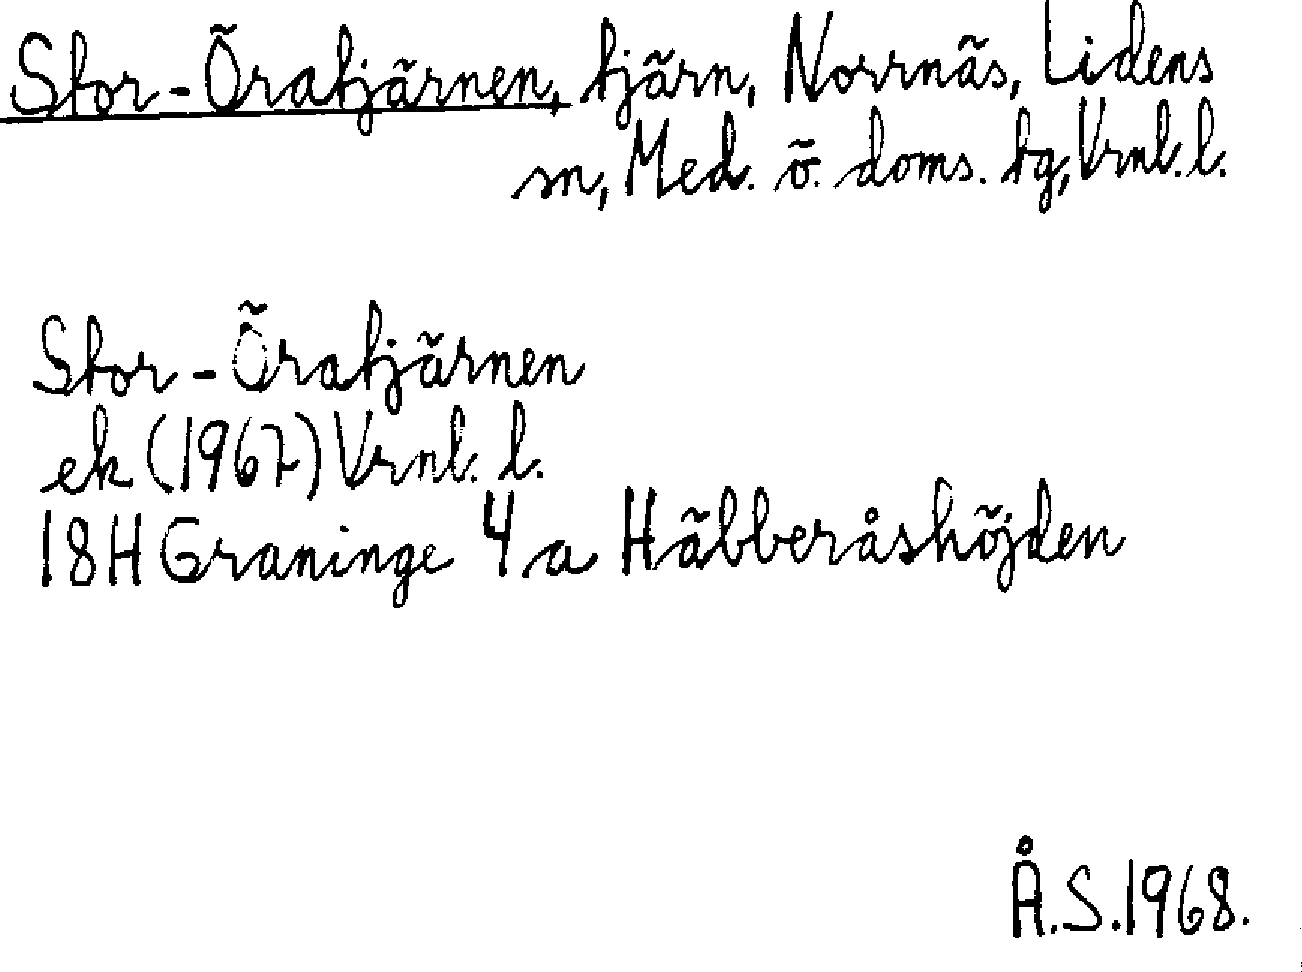 Stor-Öratjärnen, tjärn, Norrnäs, Lidens
sn, Med. ö. doms. tg, Vrnl. l.
Stor-Öratjärnen
ek (1967) Vrnl. l.
18H Graninge 4a Häbberåshöjden
Å.S. 1968.